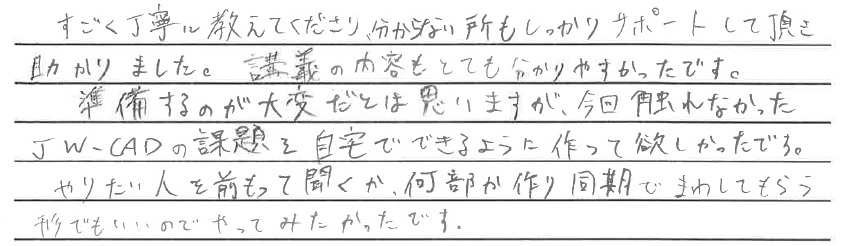 すごく丁寧に教えてくださり、分からない所もしっかりサポートして頂き
助かりました。講義の内容もとても分かりやすかったです。
準備するのが大変だとは思いますが、今回触れなかった
JW-CADの課題を自宅でできるように作って欲しかったです。
やりたい人を前もって聞くか、何部か作り同期でまわしてもらう
形でもいいのでやってみたかったです.